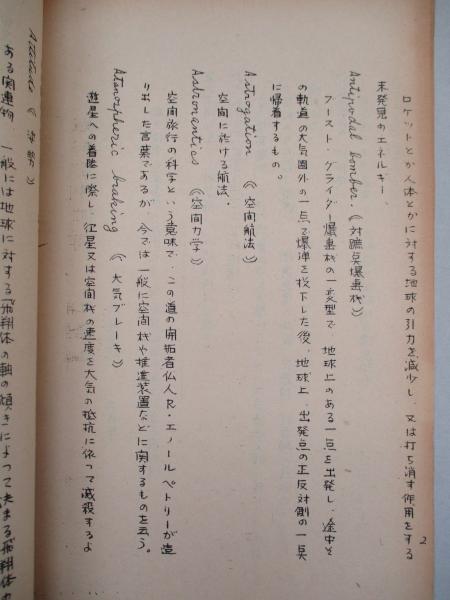 2
ロケットとか人体とかに対する地球の引力を減少し、又は打ち消す作用をする
未発見のエネルギー。
Antipodal bomber《対蹠点爆撃機》
ブースト・グライダー爆撃機の一変型で、地球上のある一点を出発し、途中を
の軌道の大気圏外の一点で爆弾を投下した後、地球上、出発点の正反対側の一点
に帰着するもの。
Astrogation《空間航法》
空間に於ける航法。
Astronautics《空間力学》
空間旅行の科学という意味で、この道の開拓者仏人R・エノールペトリーが造
り出した言葉であるが、今では一般に空間機や推進装置などに関するものを云う。
Atmospheric braking《大気ブレーキ》
遊星への着陸に際し、衛星又は空間機の速度を大気の抵抗に依って減殺するよ
Attitude《姿勢》
ある関連物 一般には地球に対する「飛翔体の軸の傾き」によって決まる飛翔体の